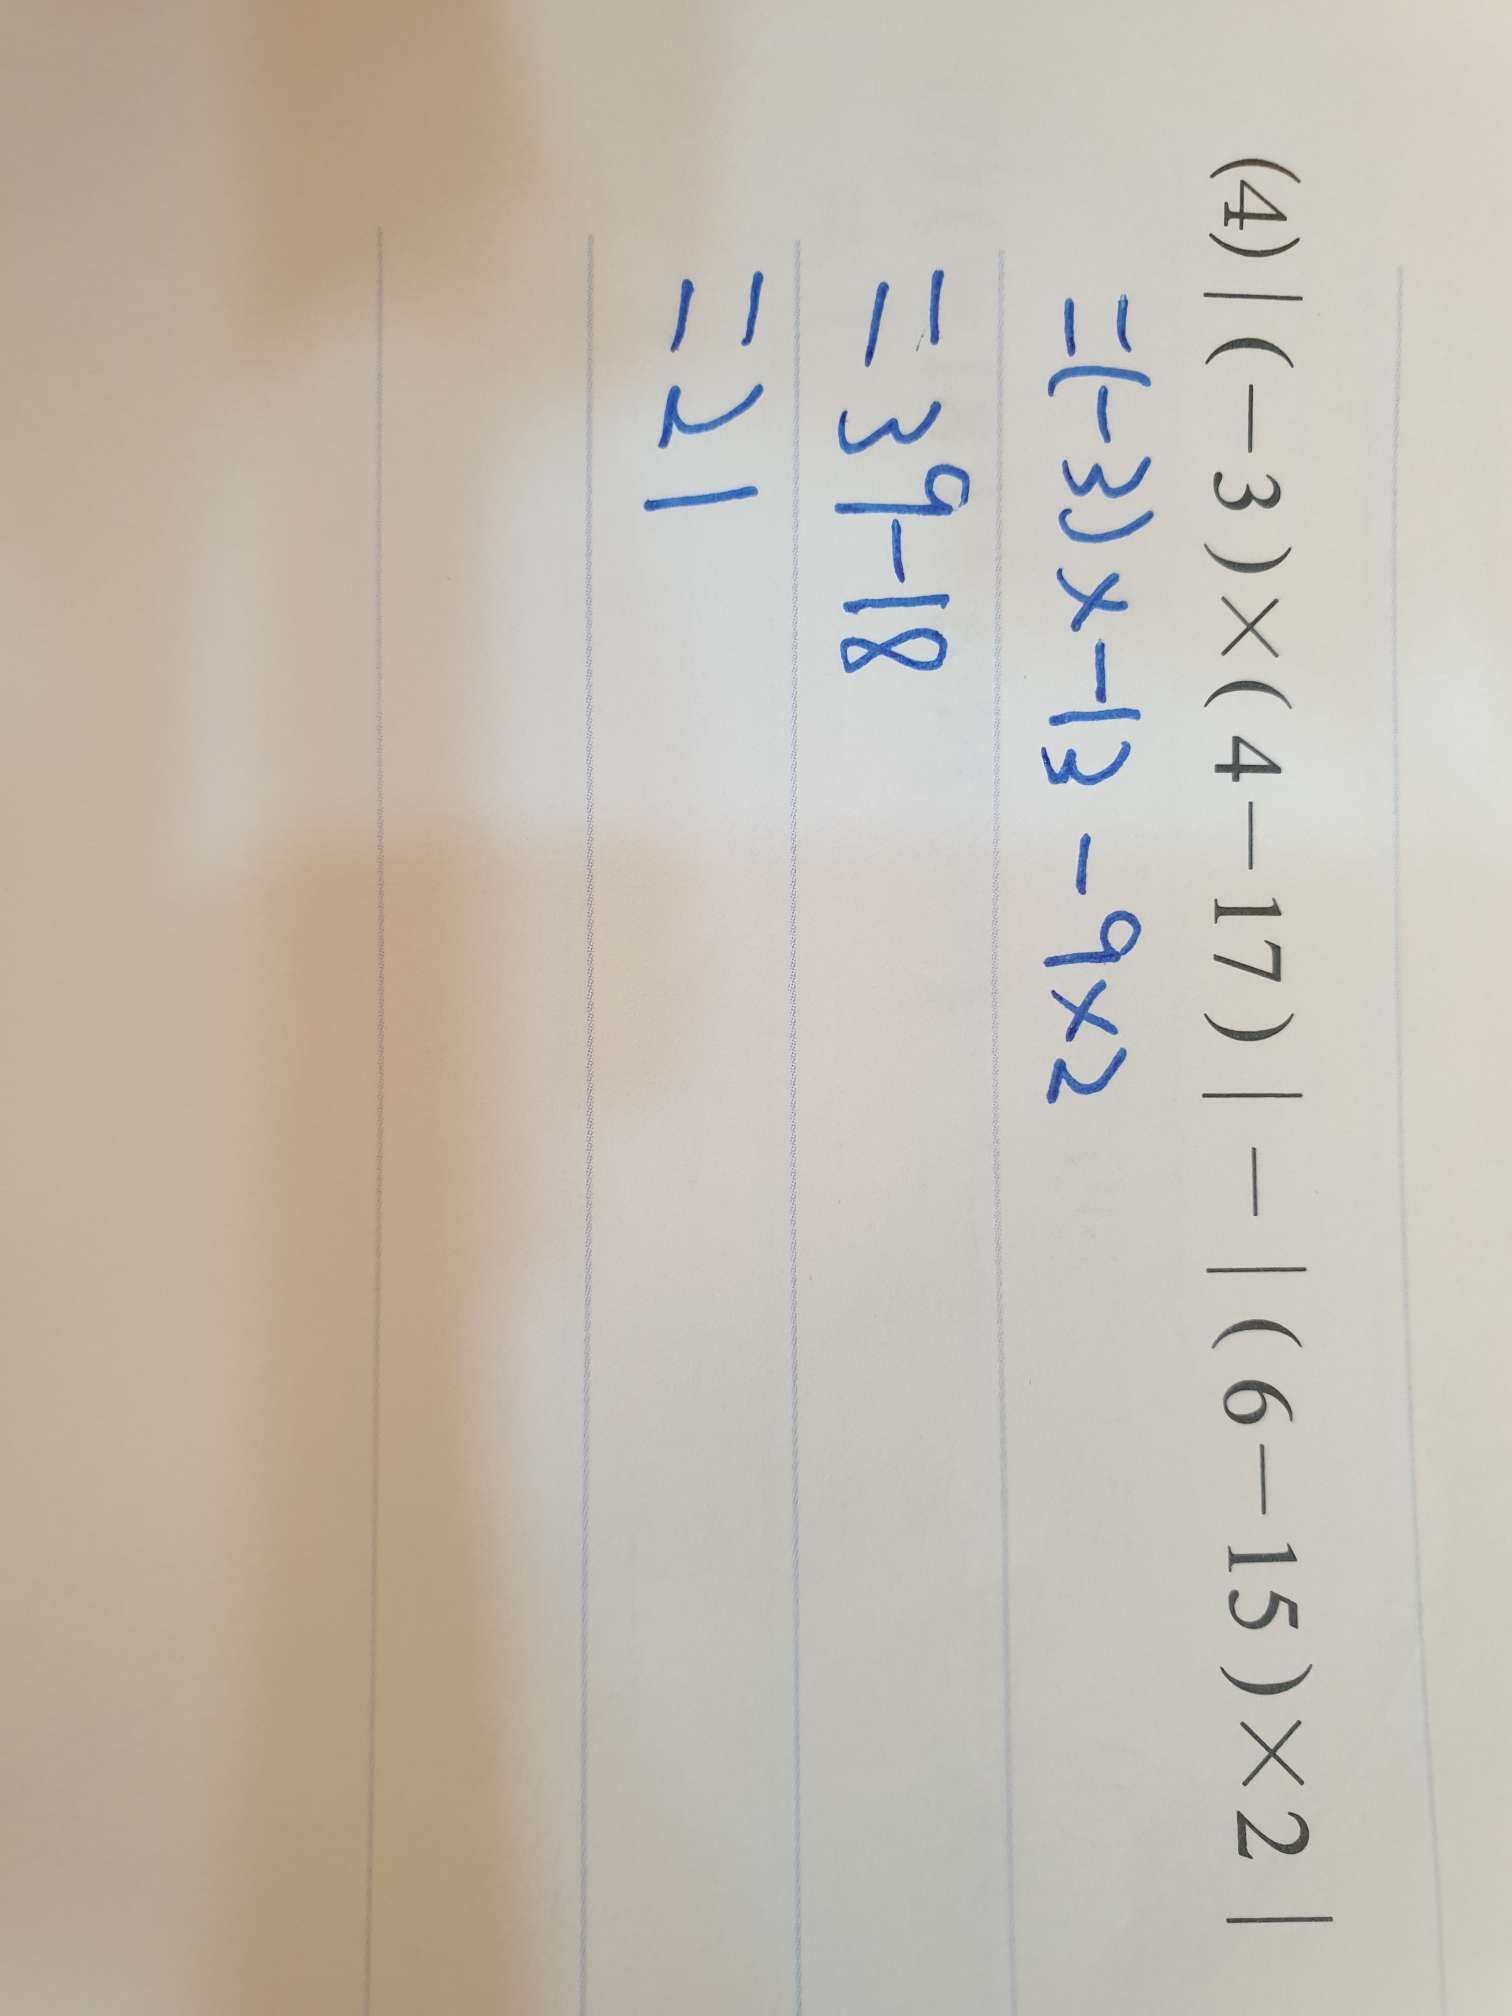 (4)|(-3)×(4-17)|-|(6-15)×2|
=(-3)×-13-9×2
=39-18
=21